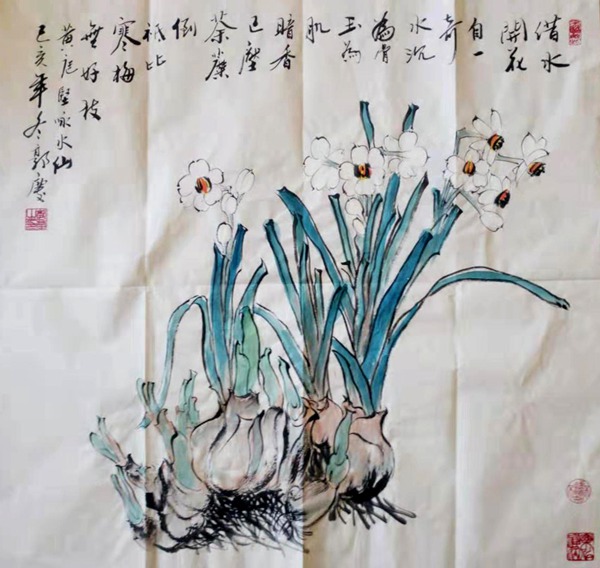 借水
開花
自一
奇
水沉
為骨
玉為
肌
暗香
已壓
荼蘼
倒
祇比
寒梅
無好枝
黄庭堅咏水仙
己亥年冬郭慶